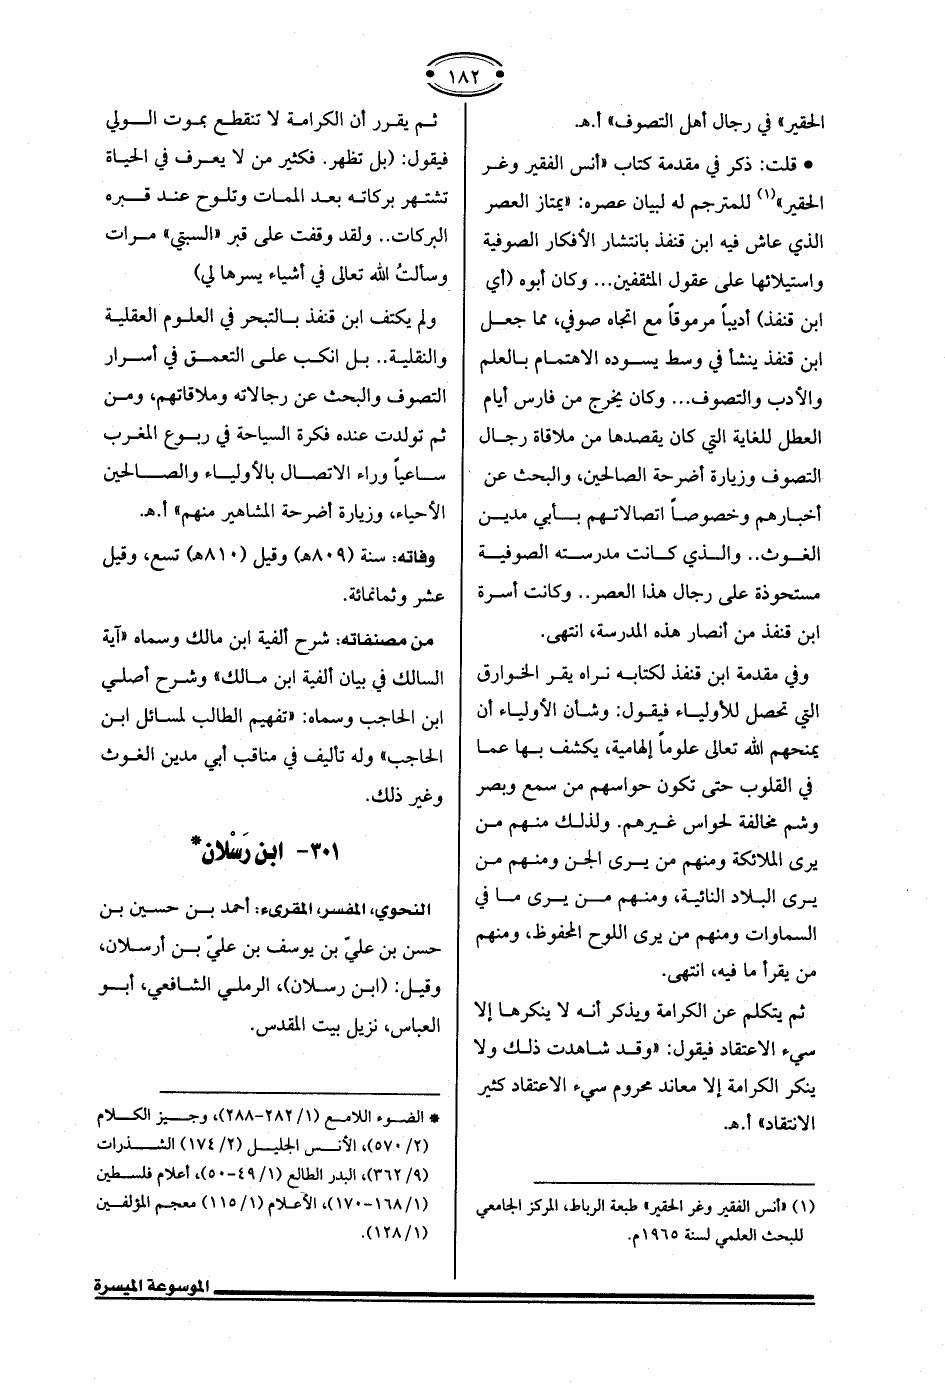 ١٨٢
الحقير» في رجال أهل التصوف» أ.هـ.
• قلت: ذكر في مقدمة كتاب «أنس الفقير وغر
الحقير»(١) للمترجم له لبيان عصره: «يمتاز العصر
الذي عاش فيه ابن قنفذ بانتشار الأفكار الصوفية
واستيلائها على عقول المثقفين... وكان أبوه (أي
ابن قنفذ) أديباً مرموقاً مع اتجاه صوفي، مما جعل
ابن قنفذ ينشأ في وسط يسوده الاهتمام بالعلم
والأدب والتصوف... وكان يخرج من فارس أيام
العطل للغاية التي كان يقصدها من ملاقاة رجال
التصوف وزيارة أضرحة الصالحين، والبحث عن
أخبارهم وخصوصاً اتصالاتهم بأبي مدين
الغوث.. والذي كانت مدرسته الصوفية
مستحوذة على رجال هذا العصر.. وكانت أسرة
ابن قنفذ من أنصار هذه المدرسة، انتهى.
وفي مقدمة ابن قنفذ لكتابه نراه يقر الخوارق
التي تحصل للأولياء فيقول: وشأن الأولياء أن
يمنحهم الله تعالى علوماً إلهامية، يكشف بها عما
في القلوب حتى تكون حواسهم من سمع وبصر
وشم مخالفة لحواس غيرهم. ولذلك منهم من
يرى الملائكة ومنهم من يرى الجن ومنهم من
يرى البلاد النائية، ومنهم من يرى ما في
السماوات ومنهم من يرى اللوح المحفوظ، ومنهم
من يقرأ ما فيه، انتهى.
ثم يتكلم عن الكرامة ويذكر أنه لا ينكرها إلا
سيء الاعتقاد فيقول: «وقد شاهدت ذلك ولا
ينكر الكرامة إلا معاند محروم سيء الاعتقاد كثير
الانتقاد» أ.هـ.
(١) «أنس الفقير وغر الحقير» طبعة الرباط، المركز الجامعي
للبحث العلمي لسنة ١٩٦٥م.
ثم يقرر أن الكرامة لا تنقطع بموت الولي
فيقول: (بل تظهر. فكثير من لا يعرف في الحياة
تشتهر بركاته بعد الممات وتلوح عند قبره
البركات.. ولقد وقفت على قبر «السبتي» مرات
وسألتُ الله تعالى في أشياء يسرها لي)
ولم يكتف ابن قنفذ بالتبحر في العلوم العقلية
والنقلية.. بل انكب على التعمق في أسرار
التصوف والبحث عن رجالاته وملاقاتهم، ومن
ثم تولدت عنده فكرة السياحة في ربوع المغرب
ساعياً وراء الاتصال بالأولياء والصالحين
الأحياء، وزيارة أضرحة المشاهير منهم» أ.هـ.
وفاته: سنة (٨٠٩هـ) وقيل (٨١٠هـ) تسع، وقيل
عشر وثمانمائة.
من مصنفاته: شرح ألفية ابن مالك وسماه «آية
السالك في بيان ألفية ابن مالك» وشرح أصلي
ابن الحاجب وسماه: «تفهيم الطالب لمسائل ابن
الحاجب» وله تأليف في مناقب أبي مدين الغوث
وغير ذلك.
٣٠١- ابن رَسْلان*
النحوي، المفسر، المقرىء: أحمد بن حسين بن
حسن بن عليّ بن يوسف بن عليّ بن أرسلان،
وقيل: (ابن رسلان)، الرملي الشافعي، أبو
العباس، نزيل بيت المقدس.
* الضوء اللامع (١/ ٢٨٢-٢٨٨)، وجيز الكلام
(٢/ ٥٧٠)، الأنس الجليل (٢/ ١٧٤) الشذرات
(٩/ ٣٦٢)، البدر الطالع (١/ ٤٩-٥٠)، أعلام فلسطين
(١/ ١٦٨-١٧٠)، الأعلام (١/ ١١٥) معجم المؤلفين
(١/ ١٢٨).
الموسوعة الميسرة